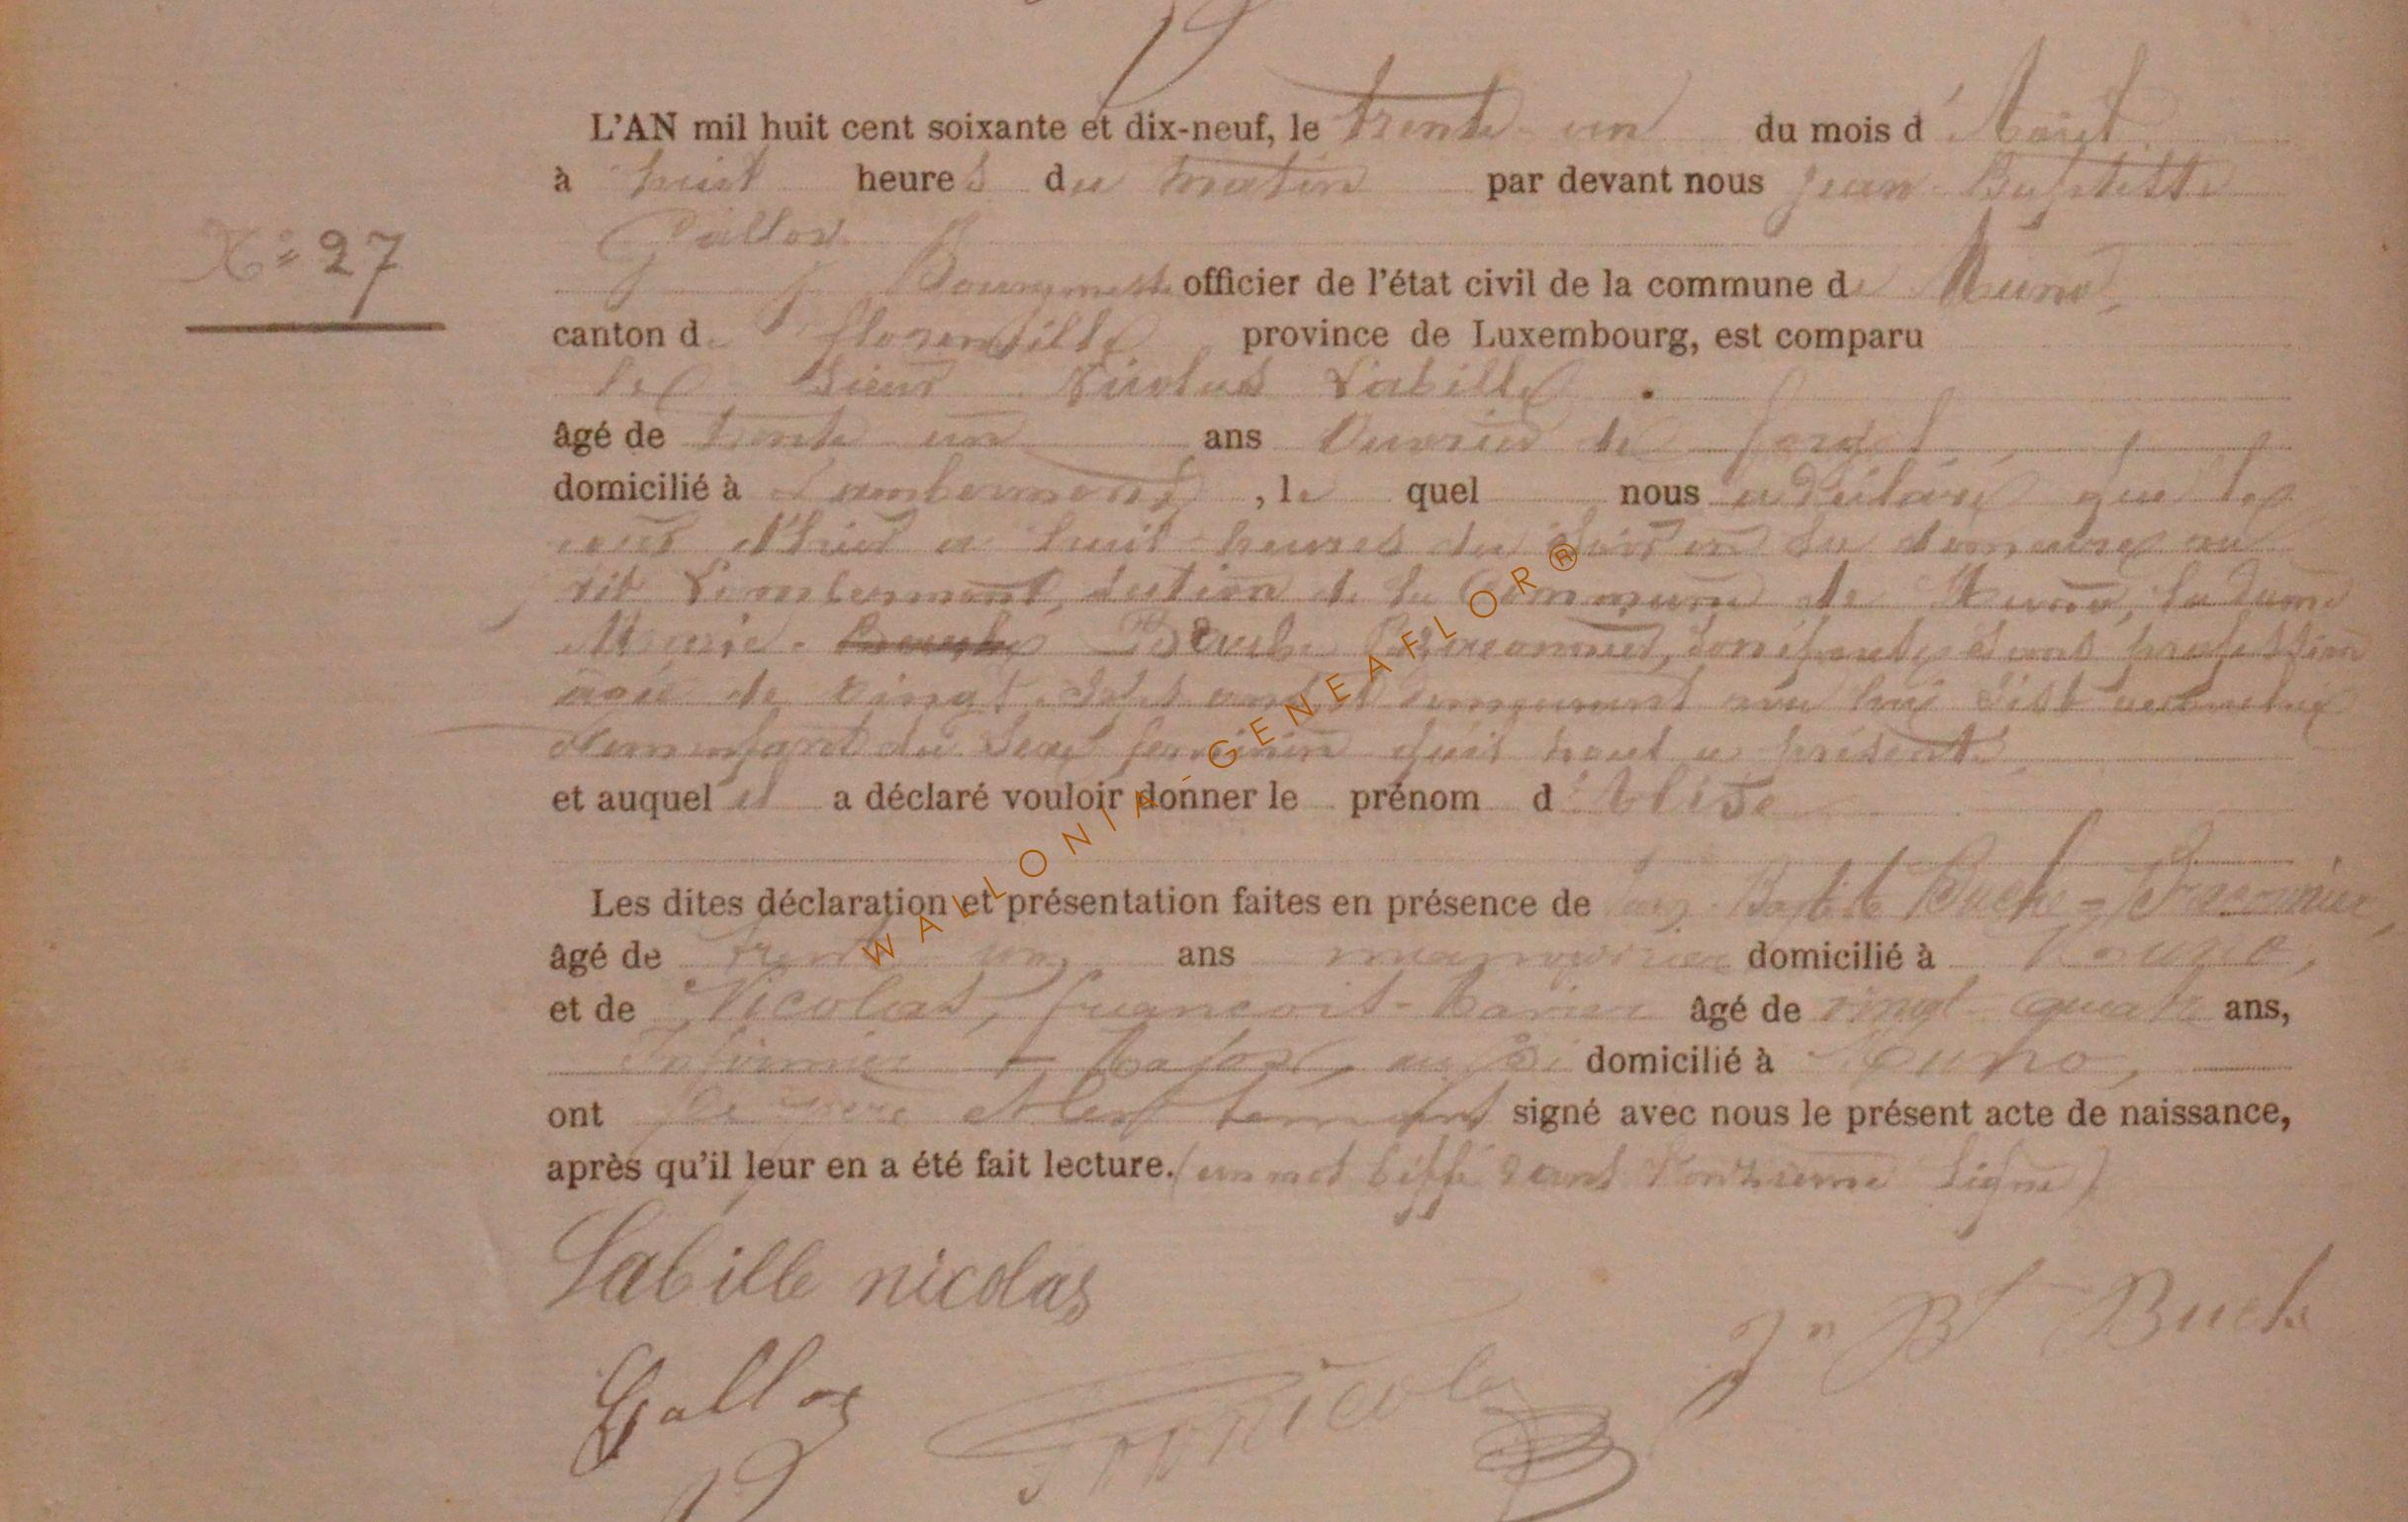 N° 27
L'AN mil huit cent soixante et dix-neuf, le trente un du mois d'Août
à huit heures du matin par devant nous Jean Baptiste
Gallos
Bourgmestre officier de l'état civil de la commune de Muno,
canton de Florenville province de Luxembourg, est comparu
le Sieur Nicolas Labille
âgé de trente un ans Ouvrier de forges
domicilié à Lambermont, le quel nous a déclaré que le
jour d'hier a huit heures du soir en sa demeure au
dit Lambermont, section de la Commune de Muno, la dame
Marie Buche Braconnier, son épouse sans profession
agée de vingt sept ans et demeurant avec lui s'est accouchée
d'un enfant du sexe féminin qu'il nous a présenté
et auquel il a déclaré vouloir donner le prénom d'Elise
Les dites déclaration et présentation faites en présence de Jean Baptiste Buche = Braconnier,
âgé de trente un ans manouvrier domicilié à Muno,
et de Nicolas, françois-Xavier âgé de vingt quatre ans,
Infirmier - Major, aussi domicilié à Muno,
ont le père et les temoins signé avec nous le présent acte de naissance,
après qu'il leur en a été fait lecture. (un mot biffé dans l'onzieme ligne)
Labille nicolas
Jn Bte Buche
Gallos
Nicolas
WALLONIA - GENEAFLOR®